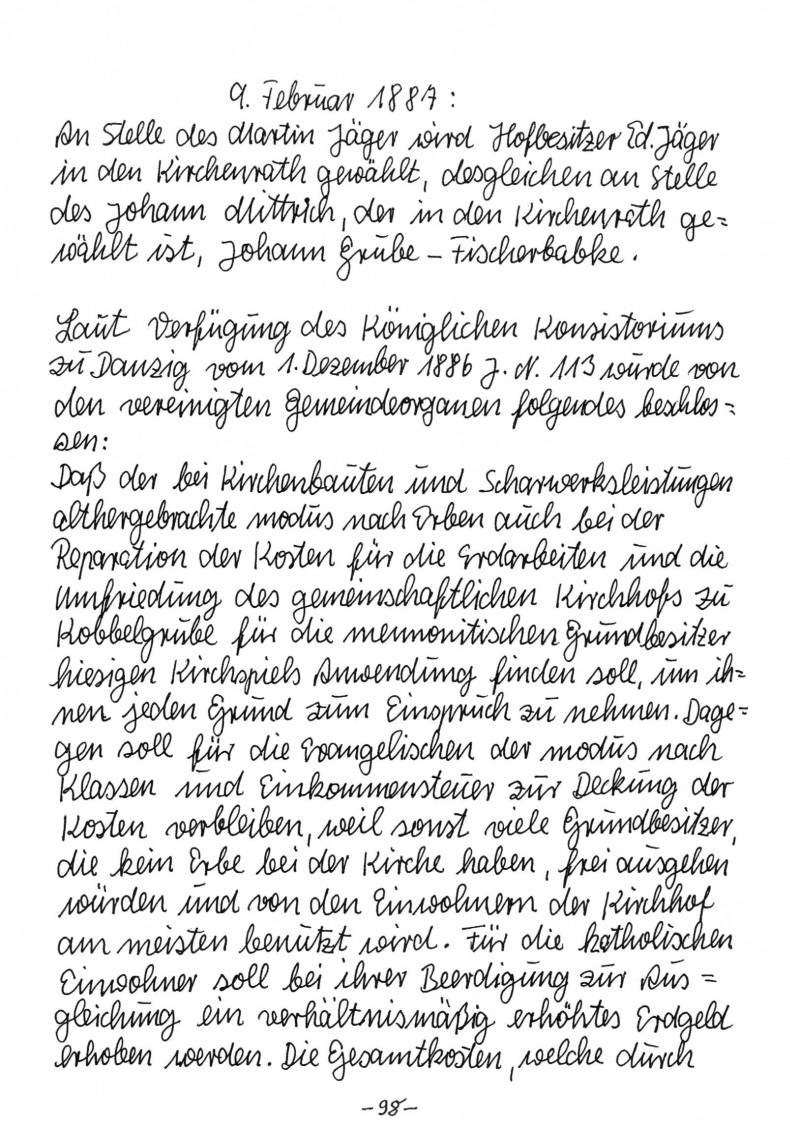 9. Februar 1887:
An Stelle des Martin Jäger wird Hofbesitzer Ed. Jäger
in den Kirchenrath gewählt, desgleichen an Stelle
des Johann Mittrich, der in den Kirchenrath ge=
wählt ist, Johann Grube - Fischerbabke.
Laut Verfügung des Königlichen Konsistoriums
zu Danzig vom 1. Dezember 1886 J. N. 113 wurde von
den vereinigten Gemeindeorganen folgendes beschlos=
sen:
Daß der bei Kirchenbauten und Scharwerksleistungen
althergebrachte modus nach Erben auch bei der
Reparation der Kosten für die Erdarbeiten und die
Umfriedung des gemeinschaftlichen Kirchhofs zu
Kobbelgrube für die mennonitischen Grundbesitzer
hiesigen Kirchspiels Anwendung finden soll, um ih=
nen jeden Grund zum Einspruch zu nehmen. Dage=
gen soll für die Evangelischen der modus nach
Klassen und Einkommensteuer zur Deckung der
Kosten verbleiben, weil sonst viele Grundbesitzer,
die kein Erbe bei der Kirche haben, frei ausgehen
würden und von den Einwohnern der Kirchhof
am meisten benutzt wird. Für die katholischen
Einwohner soll bei ihrer Beerdigung zur Aus=
gleichung ein verhältnismäßig erhöhtes Erdgeld
erhoben werden. Die Gesamtkosten, welche durch
-98-